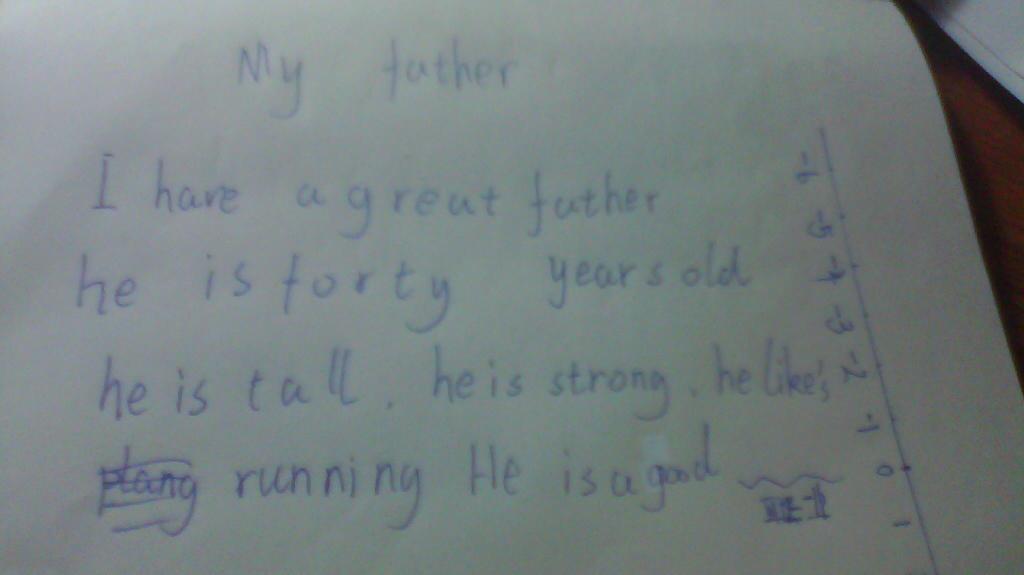 My father
I have a great father
he is forty years old
he is tall. he is strong. he like's
running He is a good
-6
-5
-4
-3
-2
-1
0
1